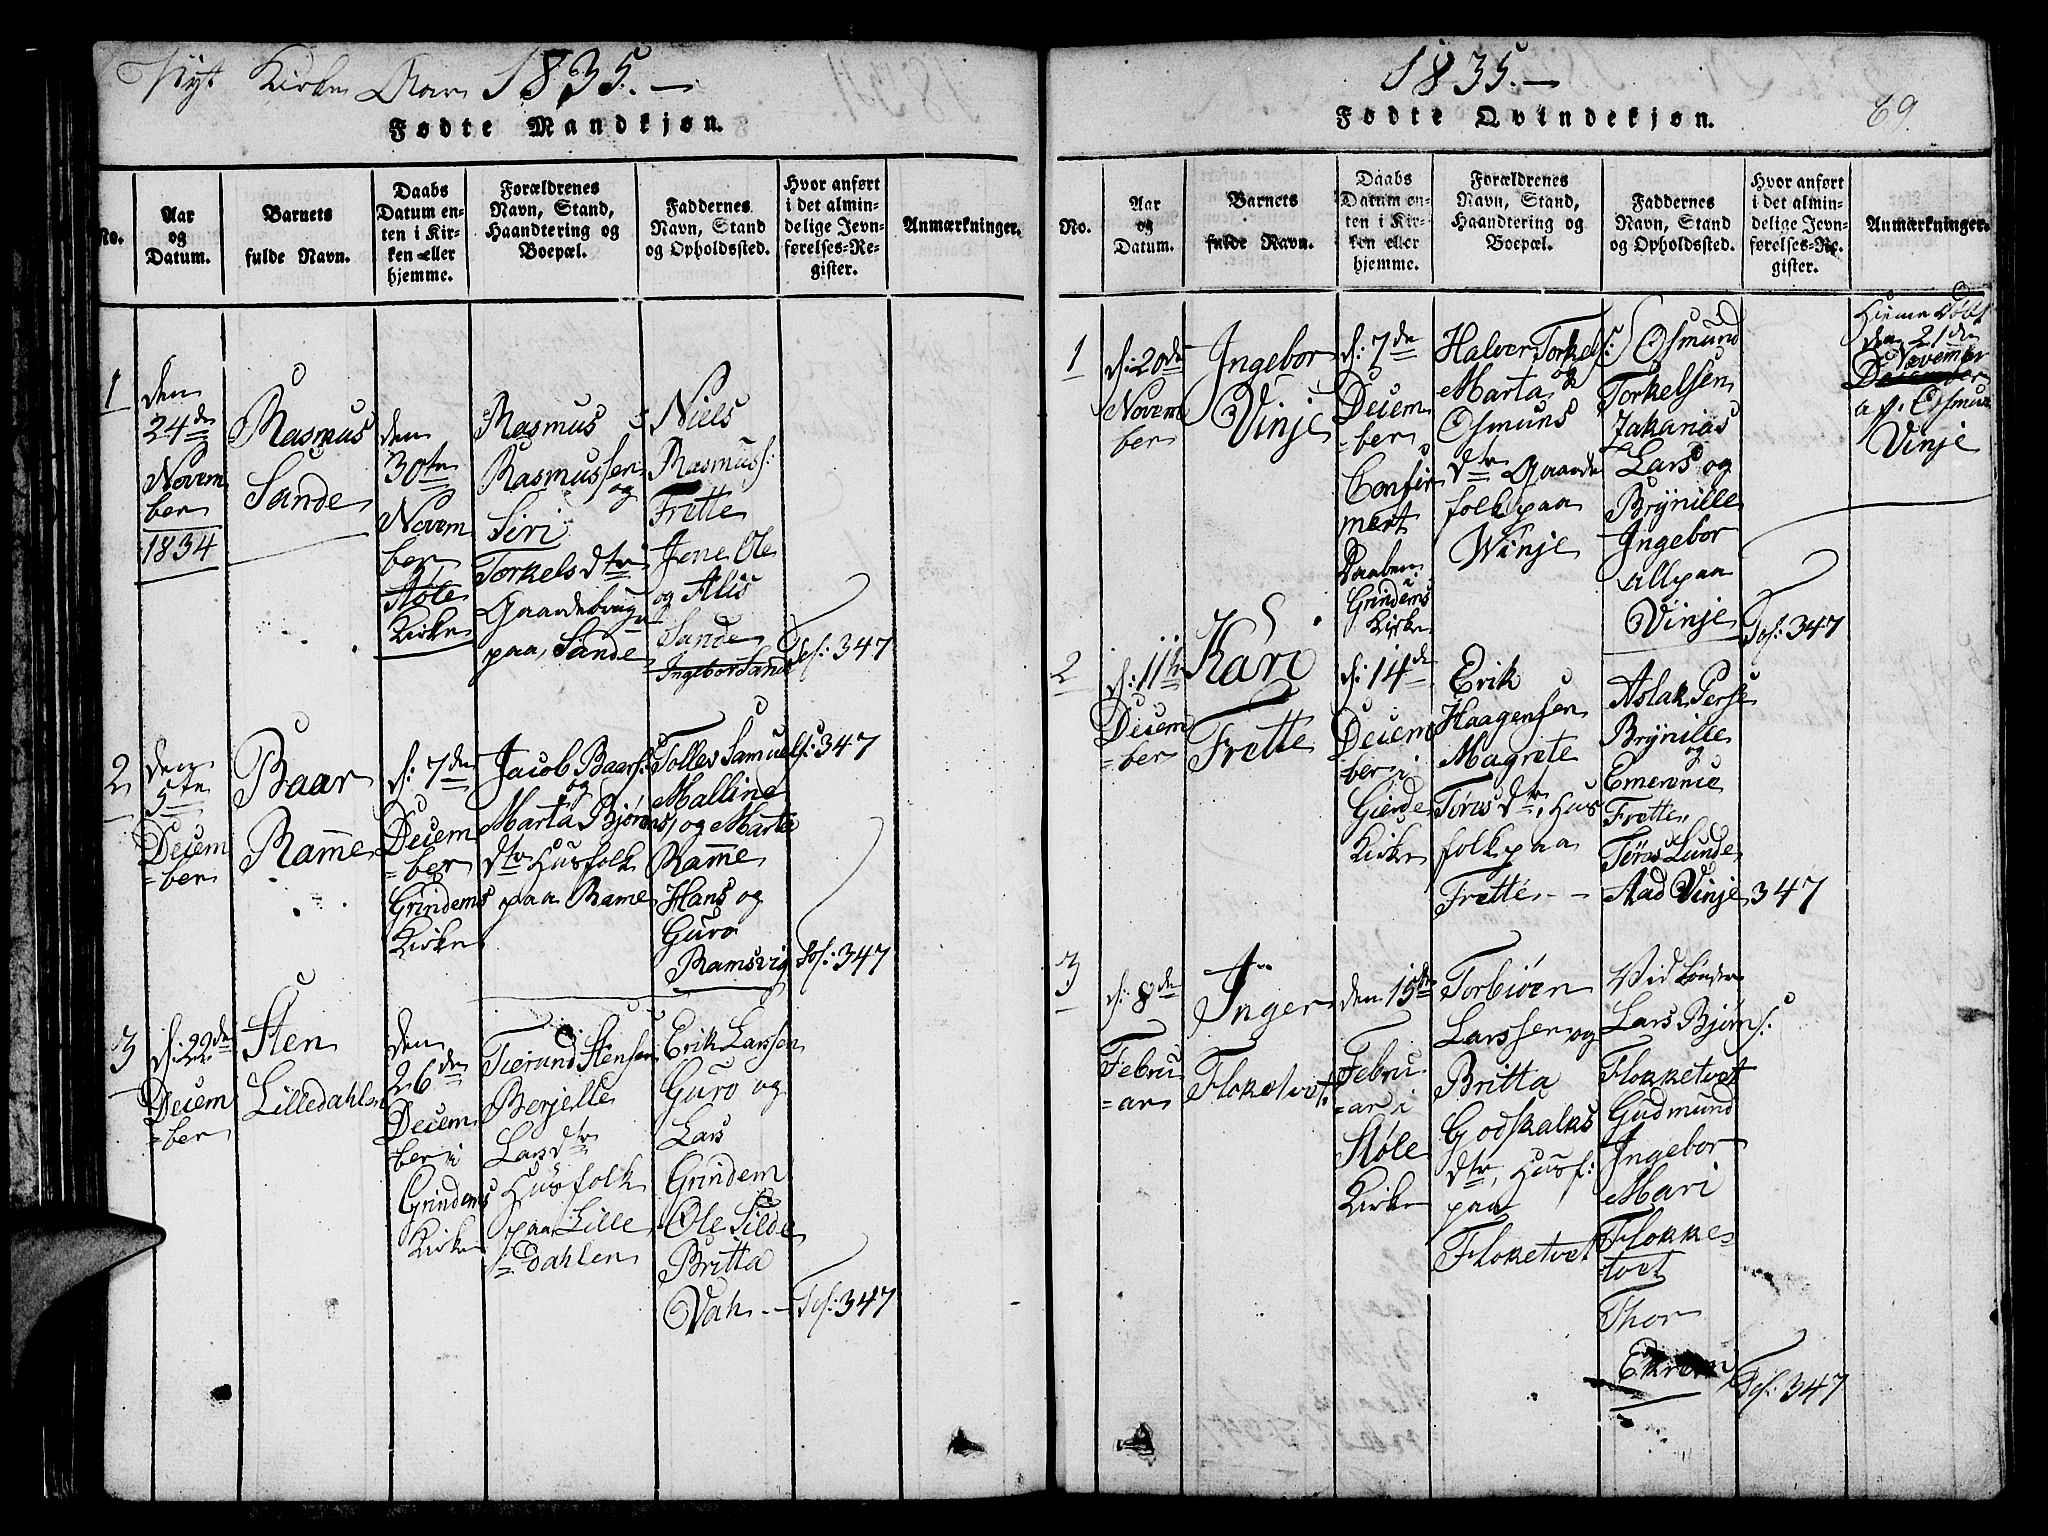 Nyt Kirke Aar 1835.-
Fødte Mandkjøn.
No.
Aar
og
Datum.
Barnets
fulde Navn.
Daabs
Datum en-
ten i Kir-
ken eller
hjemme.
Forældrenes
Navn, Stand,
Haandtering og
Boepæl.
Faddernes
Navn, Stand
og Opholdssted.
Hvor anført
i det almin-
delige Jevn-
førelses-Re-
gister.
Anmærkninger.
1
den
24de
Novem
ber
1834
Rasmus
Sande
den
30te
Novem
ber
Støle
Kirke
Rasmus
Rasmussen
og
Siri
Torkels dtr
Gaardebruger
paa, Sande
Niels
Rasmus:
Frette
Jene Ole
og Alis
Sande
Ingebor Sande
347
2
den
5te
Decem
=ber
Baar
Ramme
d: 7de
Decem
=ber
Grindems
Kirke
Jacob Baars:
og
Marta Bjørns
dtr Husfolk
paa Rame
Tolles Samuels:
Malline
og Marta
Ramme
Hans og
Guro
Ramsvig
347
347
3
d: 22de
Decem
=ber
Sten
Lilledahlen
den
26de
Decem
ber i
Grindems
Kirke
Stensen
Berjelle
Lars dtr
Husfolk
paa Lille
=dahlen
Erik Larssen
Guro og
Lars
Grindem
Ole Silde
Britta
Vah -
347
1835.-
Fødte Qvindekjøn.
69.
No.
Aar
og
Datum.
Barnets
fulde Navn.
Daabs
Datum en-
ten i Kir-
ken eller
hjemme.
Forældrenes
Navn, Stand,
Haandtering og
Boepæl.
Faddernes
Navn, Stand
og Opholdssted.
Hvor anført
i det almin-
delige Jevn-
førelses-Re-
gister.
Anmærkninger.
1
d: 20de
Novem
ber
Ingebor
Vinje
d: 7de
Decem
=ber
Confir
mert
Daaben
i
Grindems
Kirke
Halver Torkels:
og
Marta
Osmuns
dtr Gaarde
folk paa
Winje
Osmund
Torkelsen
Zakarias
Lars og
Brynille
Ingebor
all paa
Vinje
347
Hieme Døbt
den 21de
November
December
af Osmun
Vinje
2
d: 11te
Decem
=ber
Kari
Frette
d: 14de
Decem
ber i
Gierde
Kirke
Erik
Haagensen
Magrete
Tøres dtr, Hus
folk paa
Frette - -
Aslak Perse
Brynille
og
Emerense
Frette,
Tøres Lunde
Aad Vinje
347
3
d: 8de
Febru
=ar
Inger
Floketvet
den 15de
Febru
=ar i
Støle
Kirke
Torbiøen
Larssen og
Britta
Godskalks
dtr, Husf:
paa
Floketvet
Lars Bjørns:
Flokketvet
Gudmund
Ingebor
Mari
Flokke=
=tvet
Thor
347